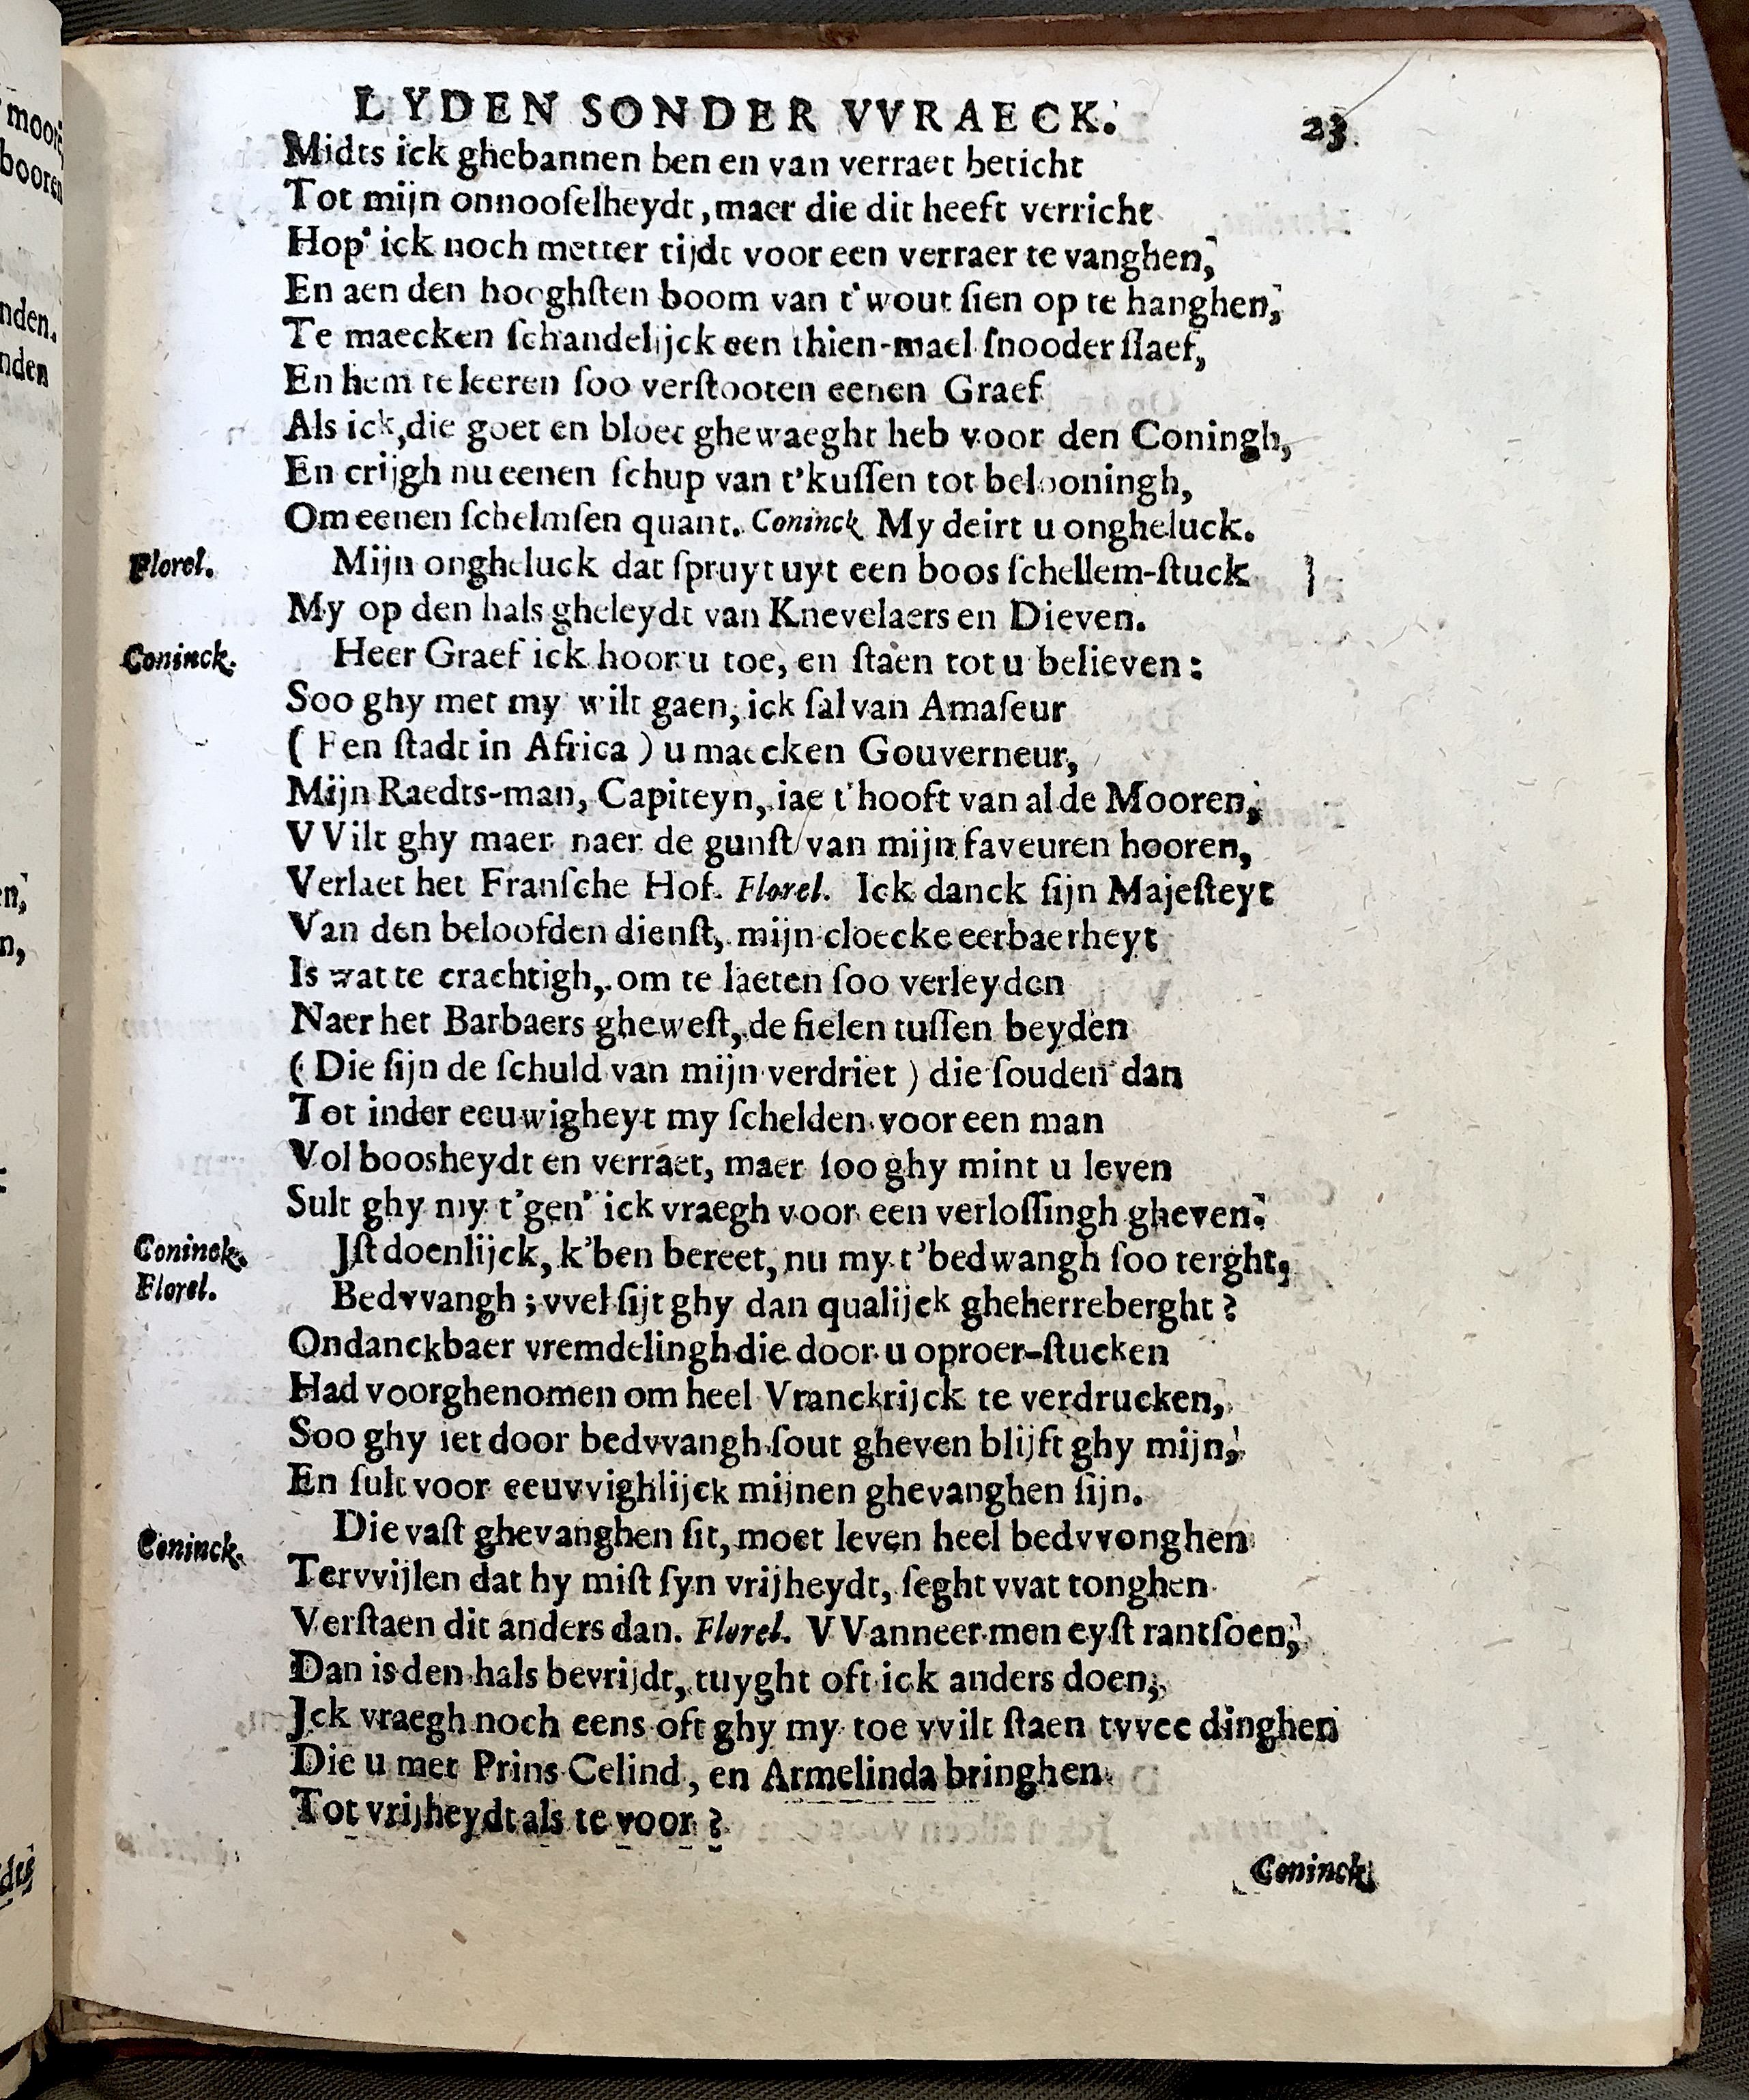 LYDEN SONDER VVRAECK. 23
Midts ick ghebannen ben en van verraet beticht
Tot mijn onnooſelheydt, maer die dit heeft verricht
Hop' ick noch metter tijdt voor een verraer te vanghen,
En aen den hooghſten boom van t'wout ſien op te hanghen,
Te maecken ſchandelijck een thien-mael ſnooder ſlaef,
En hem te leeren ſoo verſtooten eenen Graef
Als ick, die goet en bloet ghewaeght heb voor den Coningh,
En crijgh nu eenen ſchup van t'kuſſen tot belooningh,
Om eenen ſchelmſen quant. Coninck My deirt u ongheluck.
Florel. Mijn ongheluck dat ſpruyt uyt een boos ſchellem-ſtuck
My op den hals gheleydt van Knevelaers en Dieven.
Coninck. Heer Graef ick hoor u toe, en ſtaen tot u believen:
Soo ghy met my wilt gaen, ick ſal van Amaſeur
( Een ſtadt in Africa ) u maecken Gouverneur,
Mijn Raedts-man, Capiteyn, iae t'hooft van al de Mooren,
VVilt ghy maer naer de gunſt van mijn faveuren hooren,
Verlaet het Franſche Hof. Florel. Ick danck ſijn Majeſteyt
Van den beloofden dienſt, mijn cloecke eerbaerheyt
Is wat te crachtigh, om te laeten ſoo verleyden
Naer het Barbaers gheweſt, de fielen tuſſen beyden
( Die ſijn de ſchuld van mijn verdriet ) die ſouden dan
Tot inder eeuwigheyt my ſchelden voor een man
Vol boosheydt en verraet, maer ſoo ghy mint u leven
Sult ghy my t'gen' ick vraegh voor een verloſſingh gheven.
Coninck. Jſt doenlijck, k'ben bereet, nu my t'bedwangh ſoo terght,
Florel. Bedvvangh ; vvel ſijt ghy dan qualijck gheherreberght ?
Ondanckbaer vremdelingh die door u oproer-ſtucken
Had voorghenomen om heel Vranckrijck te verdrucken,
Soo ghy iet door bedvvangh ſout gheven blijft ghy mijn,
En ſult voor eeuvvighlijck mijnen ghevanghen ſijn.
Coninck. Die vaſt ghevanghen ſit, moet leven heel bedvvonghen
Tervvijlen dat hy miſt ſyn vrijheydt, ſeght vvat tonghen
Verſtaen dit anders dan. Florel. VVanneer men eyſt rantſoen,
Dan is den hals bevrijdt, tuyght oft ick anders doen;
Jck vraegh noch eens oft ghy my toe vvilt ſtaen tvvee dinghen
Die u met Prins Celind, en Armelinda bringhen
Tot vrijheydt als te voor ?
Coninck.
moori
booren
nden.
nden